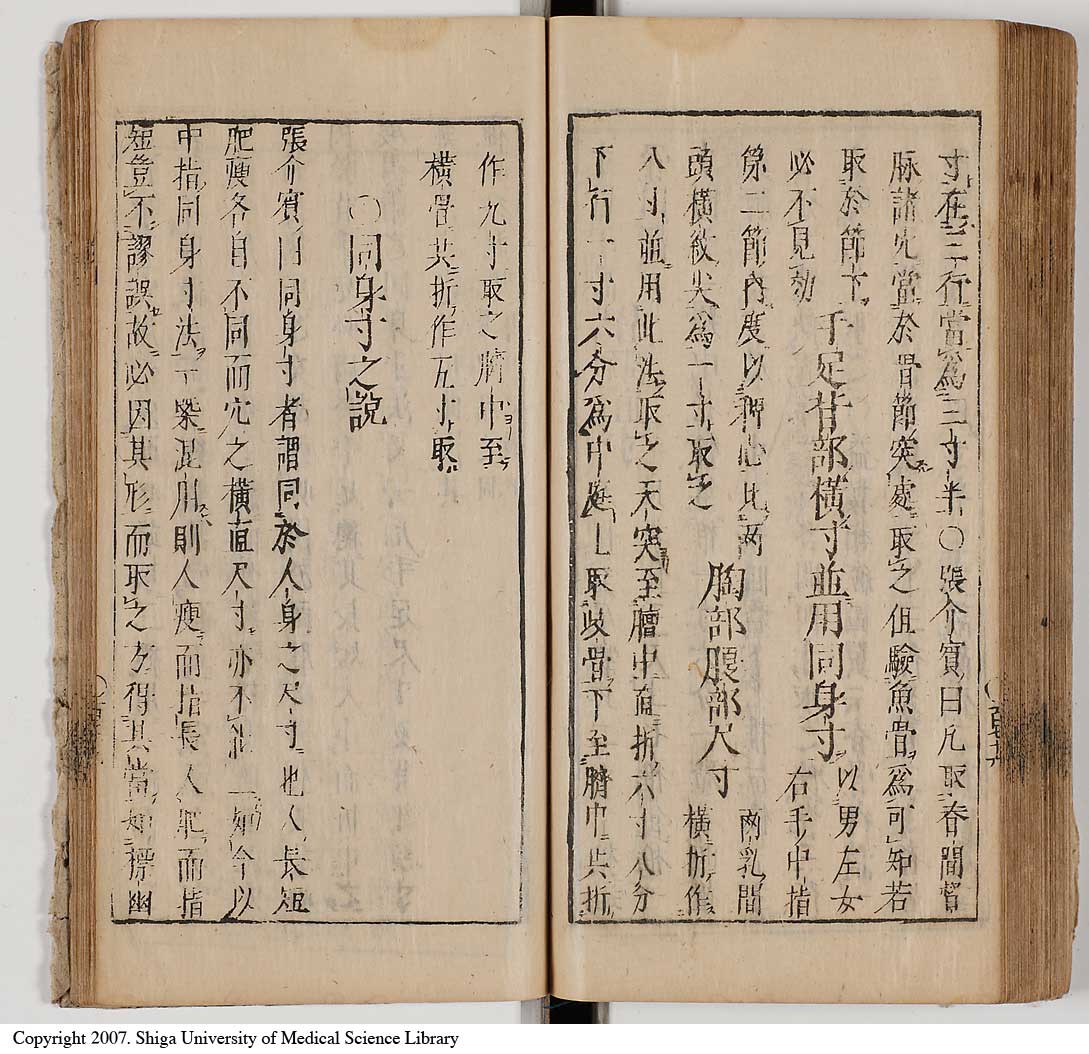 寸在三行當爲三寸半〇張介賓曰凡取脊間督
脉諸穴當於骨節突處取之但驗魚骨爲可知若
取於節下
必不見効
手足廿部橫寸並用同身寸
以男左女
右手中指
第二節內度以稈心比兩
頭橫紋尖爲一寸取之
胸部腹部尺寸
兩乳間
橫折作
八寸並用此法取之天突至膻中直折六寸八分
下行一寸六分爲中庭上取岐骨下至臍中共折
作九寸取之臍中至
橫骨共折作五寸取
〇同身寸之說
張介賓曰同身寸者謂同於人身之尺寸也人長短
肥瘦各自不同而穴之橫直尺寸亦不能一如今以
中指同身寸法一槩混用則人瘦而指長人肥而指
短豈不謬誤故必因其形而取之方得其當如標幽
Copyright 2007. Shiga University of Medical Science Library